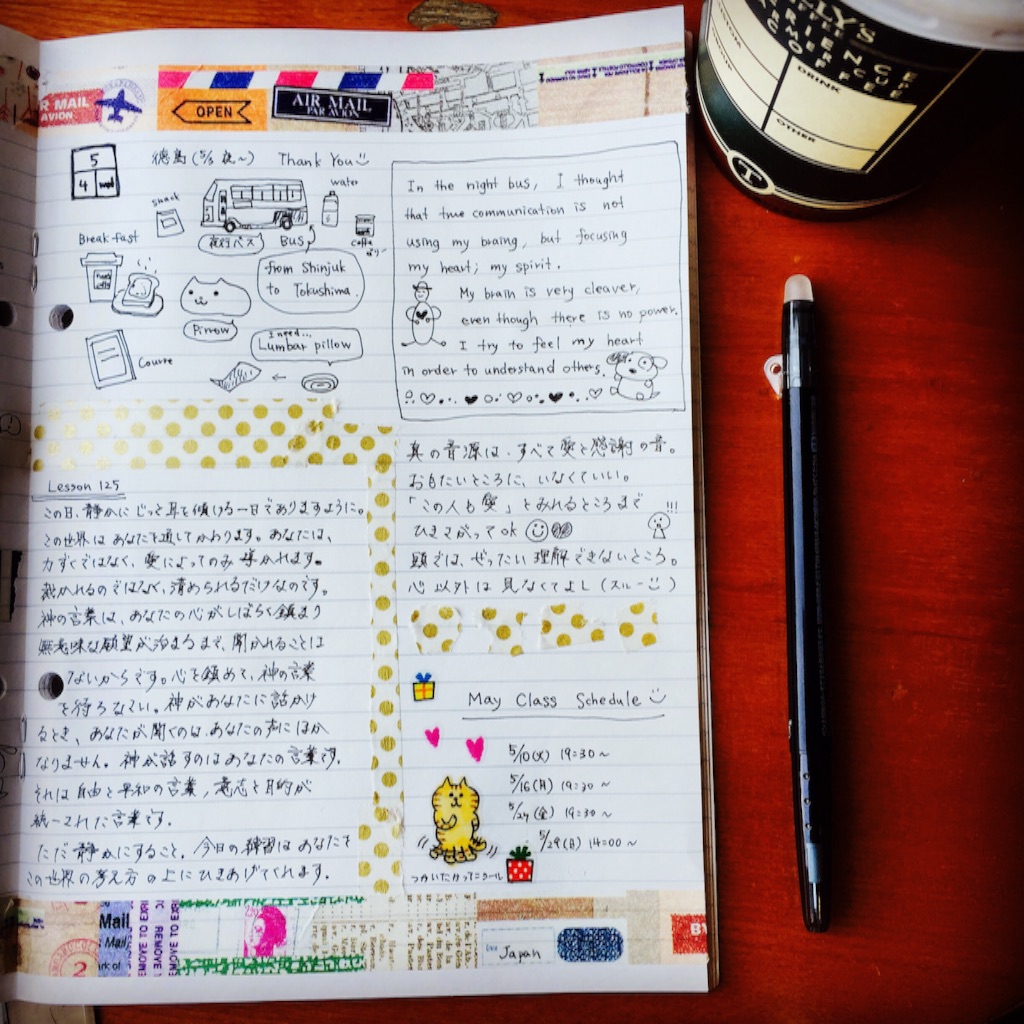 AIR MAIL
PAR AVION
OPEN
AIR MAIL
PAR AVION
5
4 wed
徳島(5/3 夜〜) Thank You
snack
water
Breakfast
夜行バス
Bus
coffe
from Shinjuk
to Tokushima
Pirrow
I need...
Lumbar pillow
Course
In the night bus, I thought
that true communication is not
using my braing, but focusing
my heart; my spirit.
My brain is very cleaver,
even though there is no power.
I try to feel my heart
in order to understand others.
Lesson 125
この日、静かにじっと耳を傾ける一日でありますように。
この世界はあなたを通してかわります。あなたは、
力ずくではなく、愛によってのみ導かれます。
裁かれるのではなく、清められるだけなのです。
神の言葉は、あなたの心がしばらく鎮まり
無意味な願望が治まるまで、聞かれることは
ないからです。心を鎮めて、神の言葉
を待ちなさい。神があなたに話かけ
るとき、あなたが聞くのは、あなたの声にほか
なりません。神が話すのはあなたの言葉です。
それは自由と平和の言葉、意志と目的が
統一された言葉です。
ただ静かにすること。今日の練習はあなたを
この世界の考え方の上にひきあげてくれます。
真の音源は、すべて愛と感謝の音。
おもたいところに、いなくていい。
「この人も愛」とみれるところまで
ひきさがってok
!!!
頭では、ぜったい理解できないところ。
心以外は見なくてよし(スルー)
May Class Schedule
5/10(火) 19:30〜
5/16(月) 19:30〜
5/27(金) 19:30〜
5/29(日) 14:00〜
つかいたかってニクール
Mail
Mail
REMOVE TO EXRI
2
Japan
BY
DRINK
OTHER
T